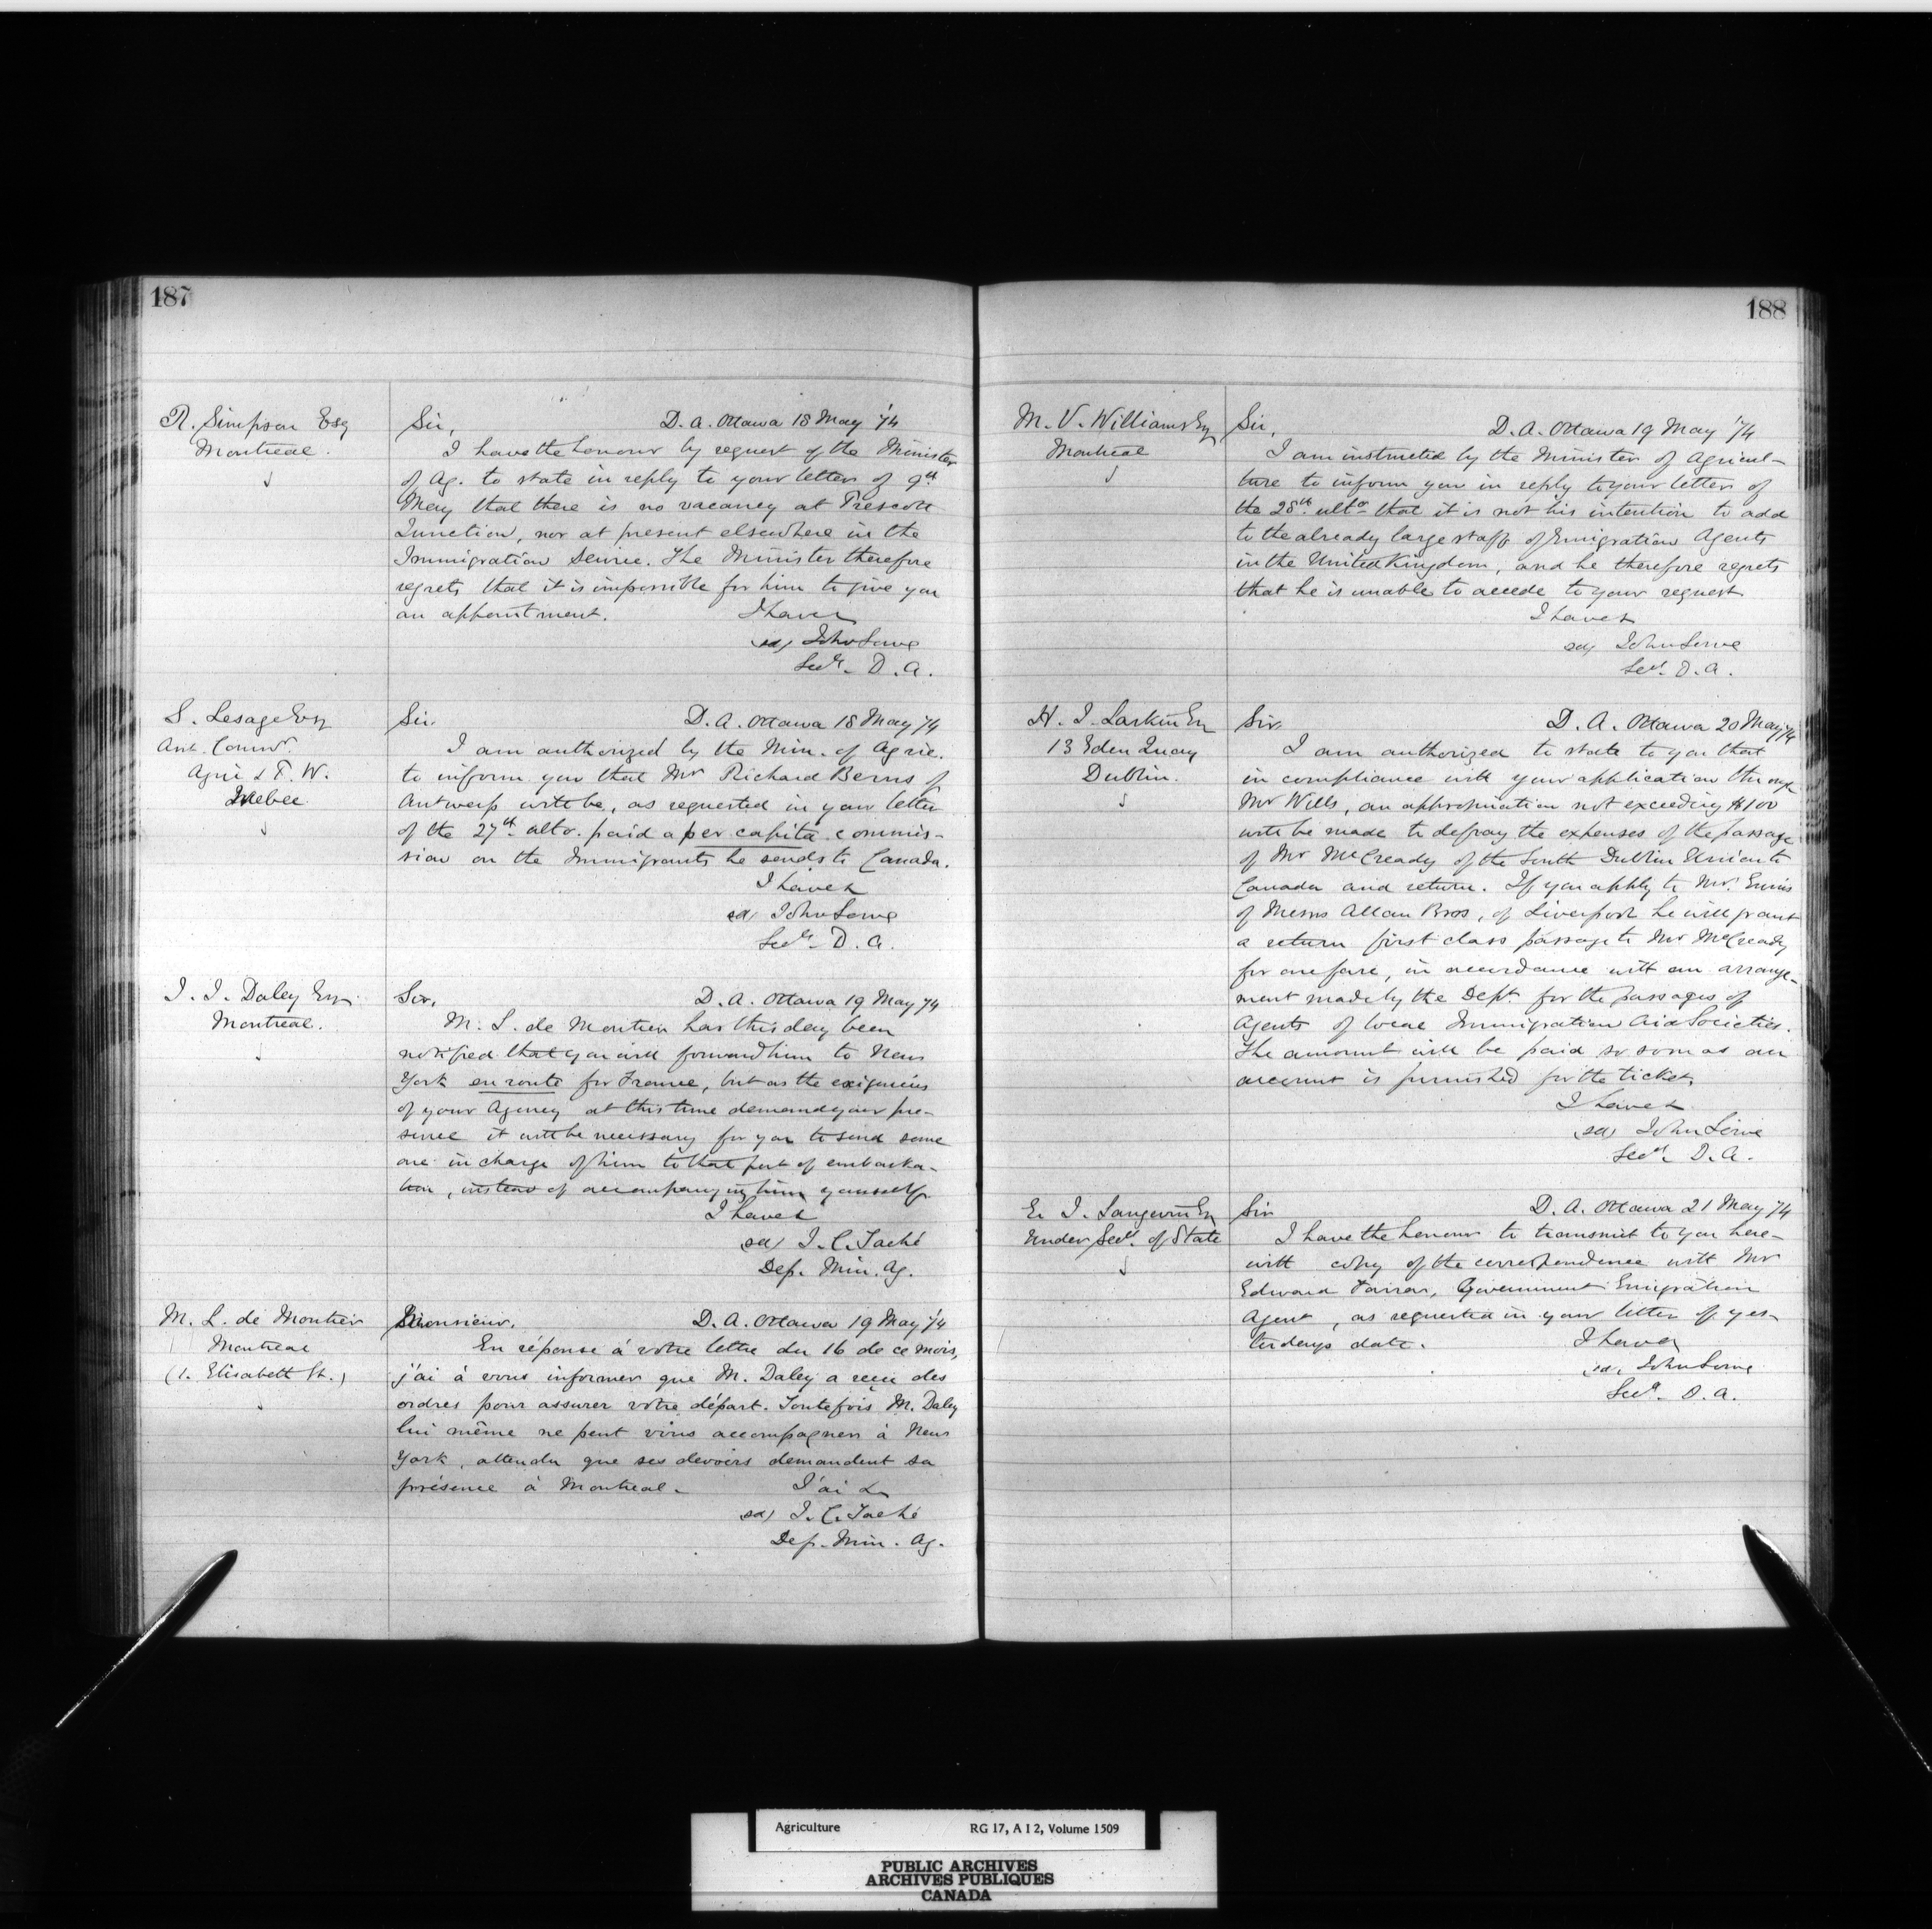 187
R. Simpson Esq
Montreal.
Sir, D. A. Ottawa 18 May '74
I have the honour by request of the Minister
of Ag. to state in reply to your letter of 9th
May that there is no vacancy at Prescott
Junction, nor at present elsewhere in the
Immigration Service. The Minister therefore
regrets that it is impossible for him to give you
an appointment. I have &
(sd) John Lowe
Secy. D. A.
S. Lesage Esq
Asst. Commr.
Agric & P. W.
Quebec
Sir. D. A. Ottawa 18 May '74
I am authorized by the Min. of Agric.
to inform you that Mr Richard Berns of
Antwerp will be, as requested in your letter
of the 27th ulto. paid a per capita commis-
sion on the Immigrants he sends to Canada.
I have &
(sd) John Lowe
Secy. D. A.
J. J. Daley Esq.
Montreal.
Sir, D. A. Ottawa 19 May '74
M. L. de Montier has this day been
notified that you will forward him to New
York en route for France, but as the exigencies
of your Agency at this time demand your pre-
sence it will be necessary for you to send some
one in charge of him to that port of embarka-
tion, instead of accompanying him yourself
I have &
(sd) J. C. Taché
Dep. Min. Ag.
M. L. de Montier
Montreal
(1. Elisabeth St.)
Monsieur, D. A. Ottawa 19 May '74
En réponse à votre lettre du 16 de ce mois,
j'ai à vous informer que M. Daley a reçu des
ordres pour assurer votre départ. Toutefois M. Daley
lui même ne peut vous accompagner à New
York, attendu que ses devoirs demandent sa
présence à Montreal. J'ai &
(sd) J. C. Taché
Dep. Min. Ag.
188
M. V. Williams Esq
Montreal
Sir, D. A. Ottawa 19 May '74
I am instructed by the Minister of Agricul-
ture to inform you in reply to your letter of
the 28th ulto that it is not his intention to add
to the already large staff of Emigration Agents
in the United Kingdom, and he therefore regrets
that he is unable to accede to your request
I have &
(sd) John Lowe
Secy. D. A.
H. J. Larkin Esq
13 Eden Quay
Dublin.
Sir, D. A. Ottawa 20 May '74
I am authorized to state to you that
in compliance with your application through
Mr Wills, an appropriation not exceeding $100
will be made to defray the expenses of the passage
of Mr McCready of the South Dublin Union to
Canada and return. If you apply to Mr. Ennis
of Messrs Allan Bros, of Liverpool he will grant
a return first class passage to Mr McCready
for one fare, in accordance with an arrange-
ment made by the Dept for the passages of
Agents of local Immigration Aid Societies.
The amount will be paid so soon as an
account is furnished for the ticket.
I have &
(sd) John Lowe
Secy. D. A.
E. J. Langevin Esq
Under Secy. of State
Sir D. A. Ottawa 21 May '74
I have the honour to transmit to you here-
with copy of the correspondence with Mr
Edward Farrar, Government Emigration
Agent, as requested in your letter of yes-
terdays date. I have &
(sd) John Lowe
Secy. D. A.
Agriculture RG 17, A I 2, Volume 1509
PUBLIC ARCHIVES
ARCHIVES PUBLIQUES
CANADA